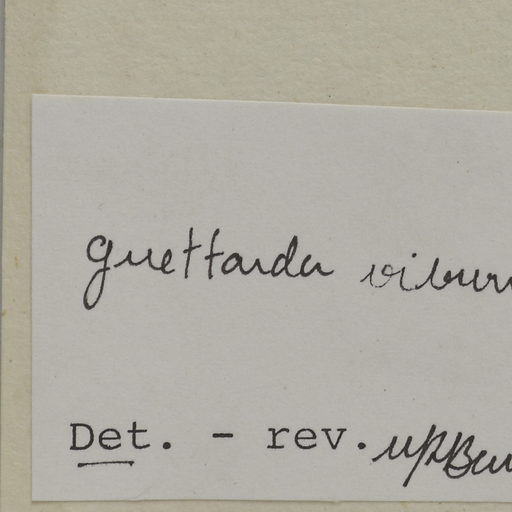 Guettarda vibur
Det. - rev.